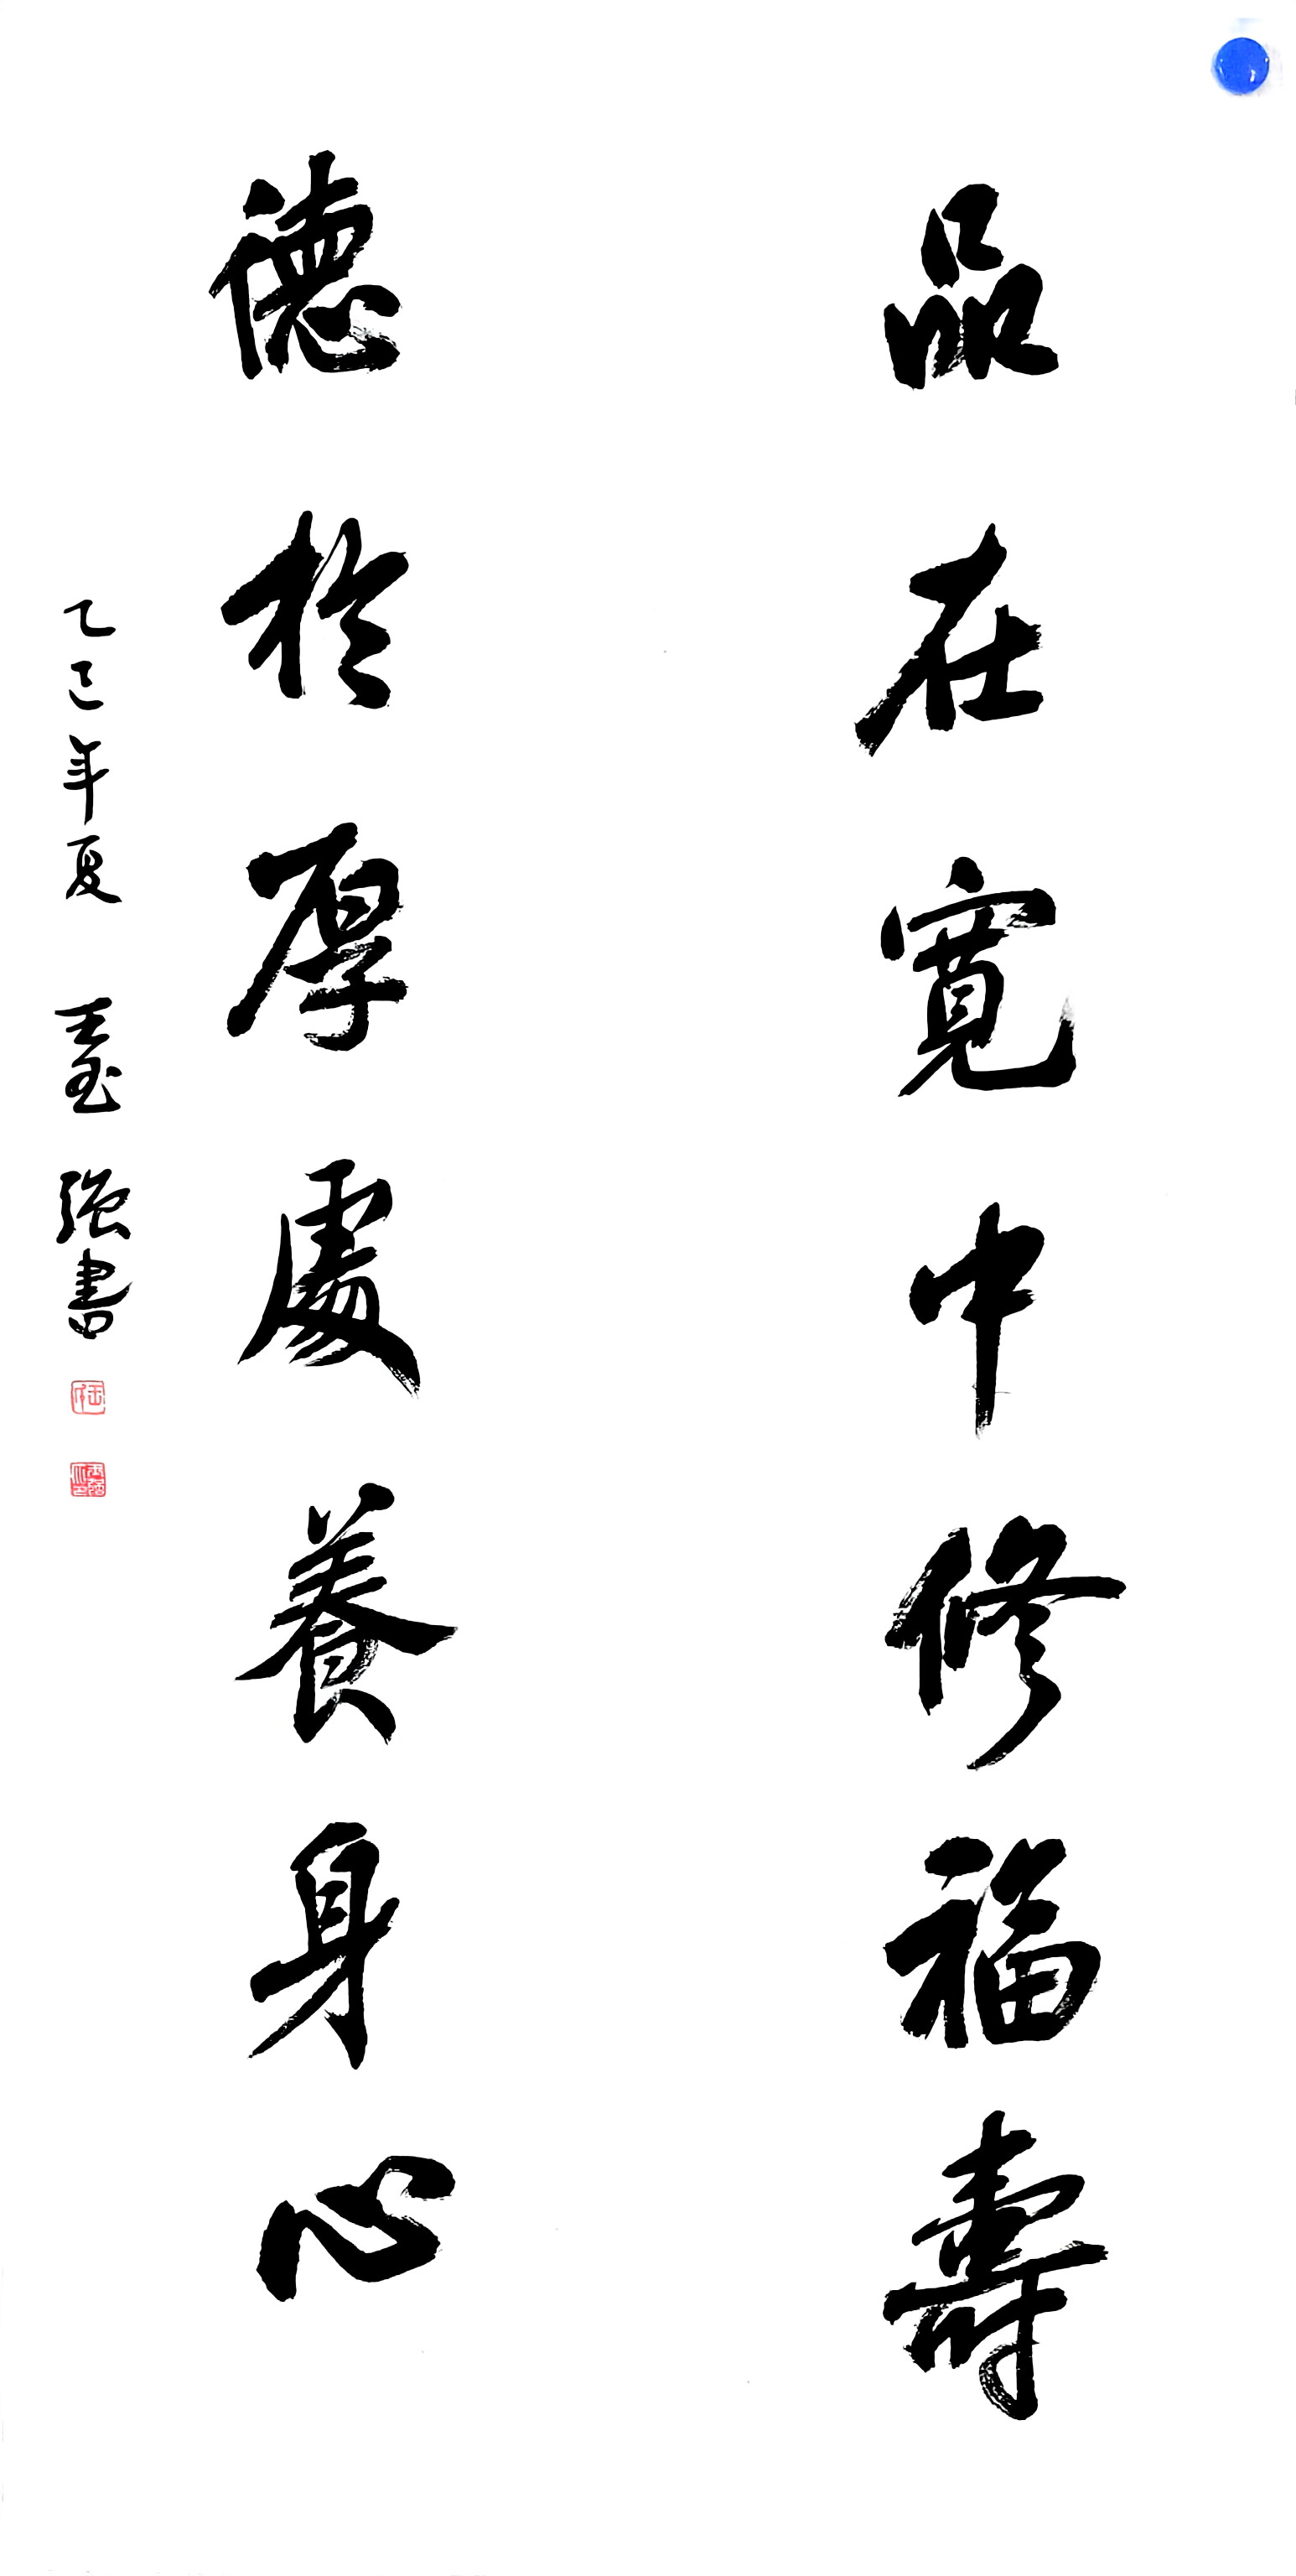 品在寬中修福壽
德於厚處養身心
乙巳年夏 王玉強書